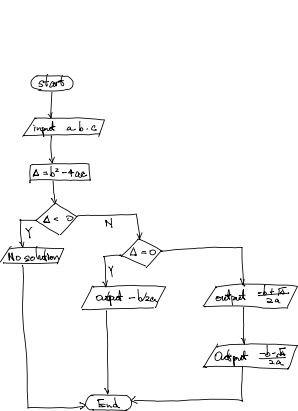 start
input a.b.c
Δ=b²-4ac
Δ< 0
Y
N
No solution
Δ=0
Y
output -b/2a
output -b+√Δ/2a
Output -b-√Δ/2a
End